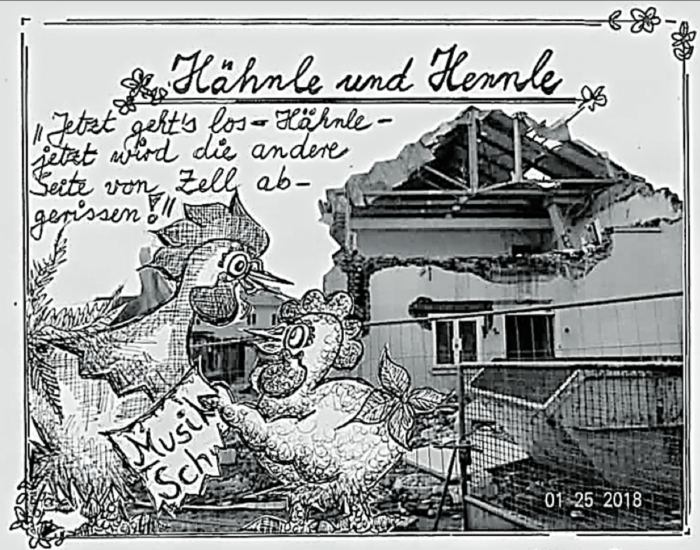 Hähnle und Hennle
„Jetzt geht's los - Hähnle -
jetzt wird die andere
Seite von Zell ab-
gerissen!"
Musik
Sch
01 25 2018